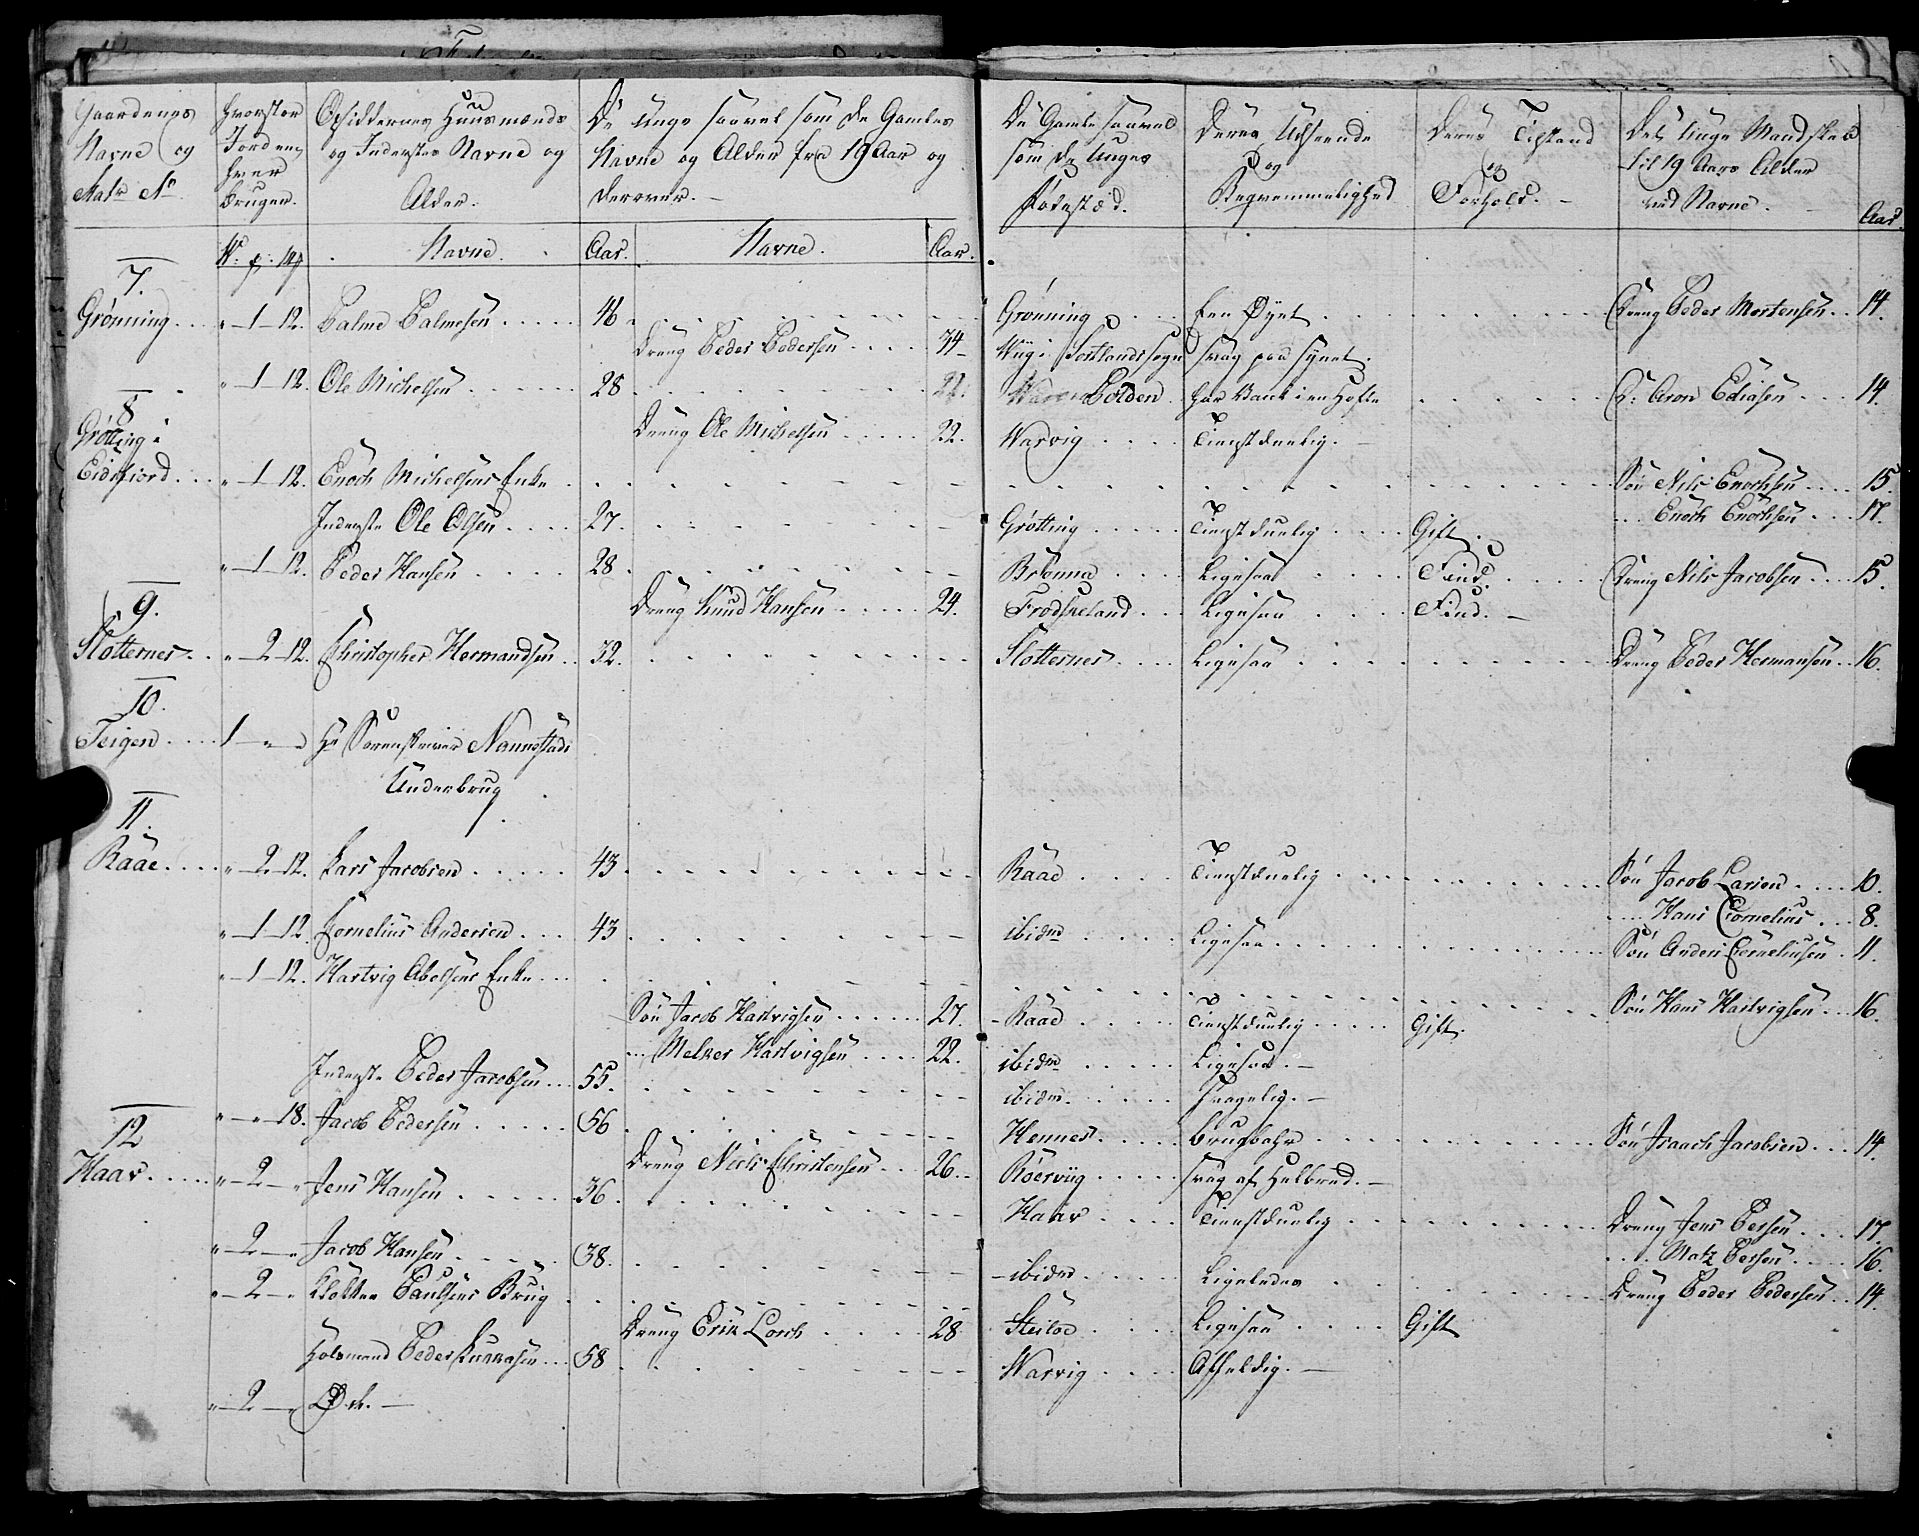 Gaardenes
Navne og
Matr No
hvorstor
Jord en
hver
bruger.
Opsiddernes Huusmænds
og Inderstes Navne og
Alder.
De unge saavel som de Gamles
Navne og Alder fra 19 Aar og
derover.
De Gamle saavel
som de unges
Fødested.
Deres Udseende
og
Beqvemmelighed
Deres Tilstand
og
Forhold.
Det unge Mandskab
til 19 Aars Alder
ved Navne.
Aar.
W. p. m#
Navne.
Aar.
Navne.
Aar.
7.
Grønning . . . " 1 12. Palme Palmesen . . . . . 46 Grønning . . . Een Øyet . . . Dreng Peder Mortensen . . 14.
Dreng Peder Pedersen . . . . 34 Wiig i Sortlands sogn svag paa Synet.
" 1 12. Ole Michelsen . . . . . 28 . . . Bolden har Vank i en Hofte . . . D: Aron Eliasen . . . 14.
8
Grøtting i
Eidsfiord . . .
Dreng Ole Michelsen . . . . . 22. Warvig . . . . Tienstduelig.
" 1 12. Enoch Michelsens Enke . . . Søn Nils Enochsen . . . . 15.
Inderste Ole Olsen . . . . 27. Grøtting . . . . . Tienstduelig . . . . Gift. . . . Enoch Enochsen . . . 17.
" 1 12. Peder Hansen . . . . 28 . . . Brønna . . . . Ligesaa . . . . Find. . . . Dreng Nils Jacobsen . . . 15.
Dreng Knud Hansen . . . . . 24. Frodskeland . . . Ligesaa . . . . Find.
9.
Slotternes . . " 2 12. Christopher Hermandsen . . 32. . . . Slotternes . . . . Ligesaa . . . Dreng Peder Hermansen . . 16.
10.
Teigen . . . . 1 " " Hr Sorenskriver Nannestads
Underbrug
11.
Raae . . . . " 2 12. Lars Jacobsen . . . . . 43 . . . Raae . . . . Tienstduelig . . . Søn Jacob Larsen . . . . 10.
. . . . Hans Cornelius . . . 8.
" 1 12. Cornelius Andersen . . . 43 . . . ibidm . . . . Ligesaa . . . Søn Anders Corneliusen . 11.
" 1 12. Hartvig Abelsens Enke . . . Søn Hans Hartvigsen . . . 16.
Søn Jacob Hartvigsen . . . . . 27. Raae . . . . . Tienstduelig . . . . . Gift.
. . . Melker Hartvigsen . . . . 22. ibidm . . . . . Ligesaa.
Inderste Peder Jacobsen . . . 55. . . . ibidm. . . . . Svagelig.
12
Haav . . . . .
" " 18. Jacob Pedersen . . . . . 56 . . . Hennes . . . . brugbahr . . . Søn Isaach Jacobsen . . . 14.
Dreng Niels Christensen . . . 26. Roerviig . . . . svag af Helbred.
" 2 " Jens Hansen . . . . . . 36 . . . Haav . . . . Tienstduelig . . . Dreng Jens Persen . . . 17.
. . . . Matz Persen . . . . 16.
" 2 " Jacob Hansen . . . . 38. . . . ibidm . . . . Ligeledes . . .
" 2 " Klokker Paulsens Brug . . . Dreng Peder Pedersen . . 14.
Dreng Erik Losch . . . . 28 Steiloe . . . . Ligesaa . . . . Gift
Holsmand Peder . . . 58 . . . Warvig . . . . Affeldig.
" 2 " Øde.